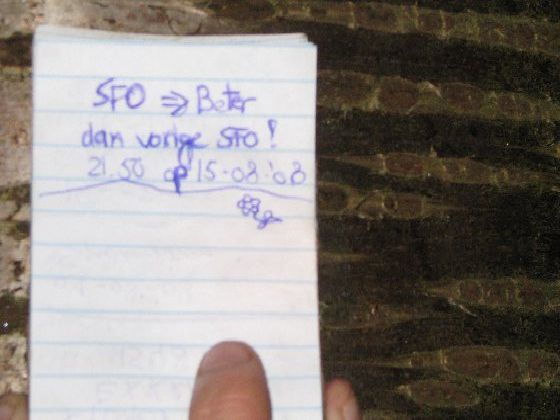 SFO ⇒ Beter
dan vorige SFO!
21.50 op 15-08-'08